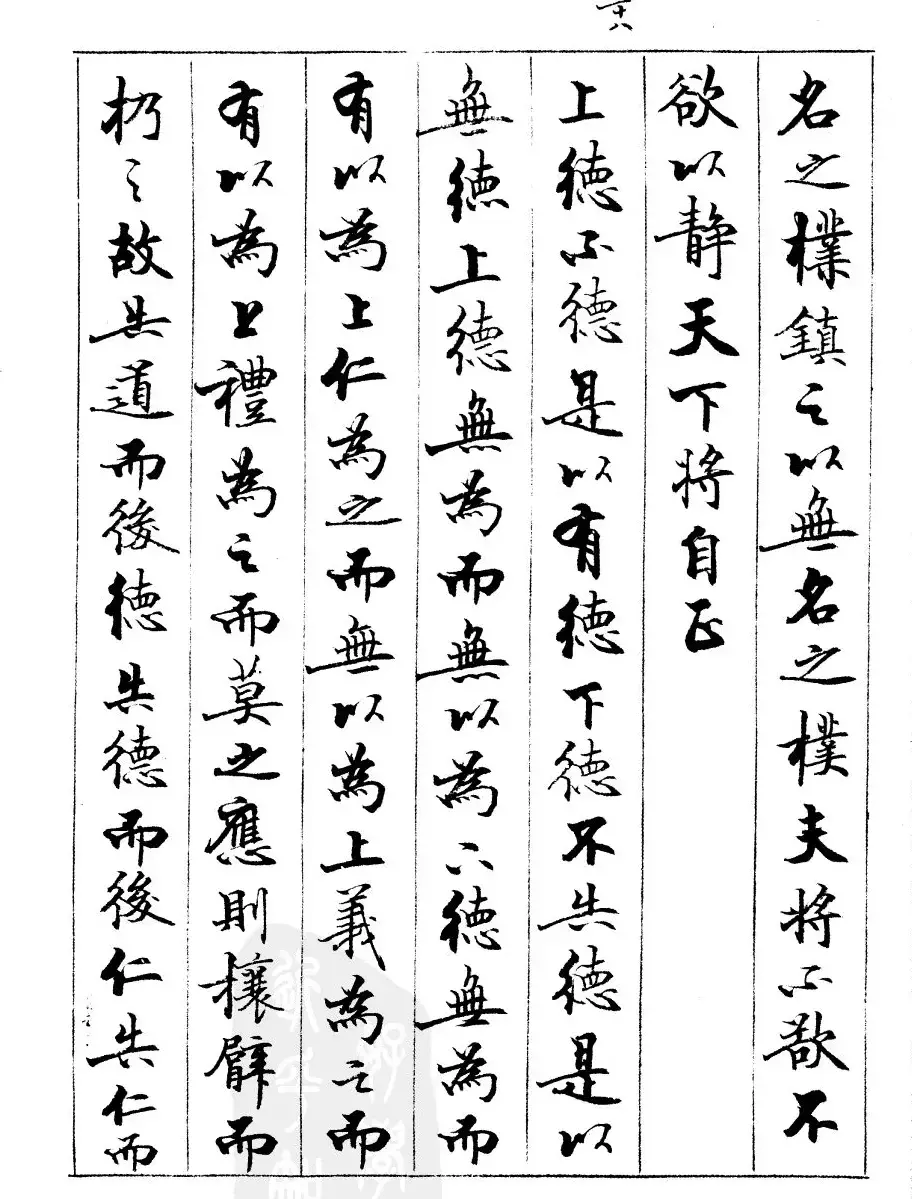 名之樸鎮之以無名之樸夫將不欲不
欲以静天下將自正
上德不德是以有德下德不失德是以
無德上德無為而無以為下德無為而
有以為上仁為之而無以為上義為之而
有以為上禮為之而莫之應則攘臂而
扔之故失道而後德失德而後仁失仁而